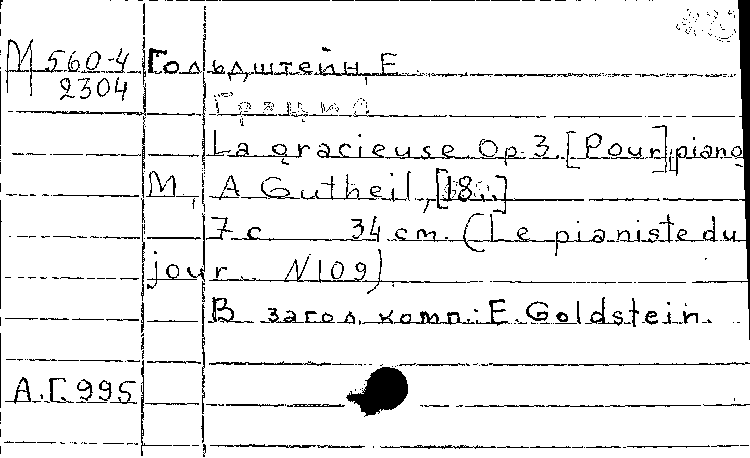 М 560-4 Гольдштейн, Е.
2304
Грация
La gracieuse. Op. 3. [Pour] piano
M., A Gutheil, [18..]
7 с. 34 cm. (Le pianiste du
jour. N 109)
В загол. комп.: E. Goldstein.
А.Г. 995